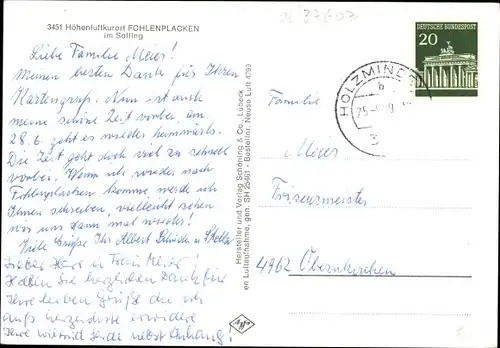 3451 Höhenluftkurort FOHLENPLACKEN
im Solling
Liebe Familie Meier!
Meinen besten Dank für Ihren
Kartengruß. Nun ist auch
meine schöne Zeit vorbei, am
28.6. geht es wieder heimwärts.
Die Zeit geht doch viel zu schnell
vorbei. Wenn ich wieder nach
Fohlenplacken komme, werde ich
Ihnen schreiben, vielleicht sehen
wir uns dann mal wieder!
Viele Grüße Ihr Albert
Lieber Herr u. Frau Meier!
Haben Sie herzlichen Dank für
Ihre lieben Grüße die ich
aufs herzlichste erwidere
Ihre nebst Anhang!
Hersteller und Verlag Schöning & Co., Lübeck
en Luftaufnahme, gen. SH 25461 - Bestellnr. Neuso Luft 4793
Agfa
DEUTSCHE BUNDESPOST
20
HOLZMINDEN
b
Familie
Meier
Friseurmeister
4962 Obernkirchen